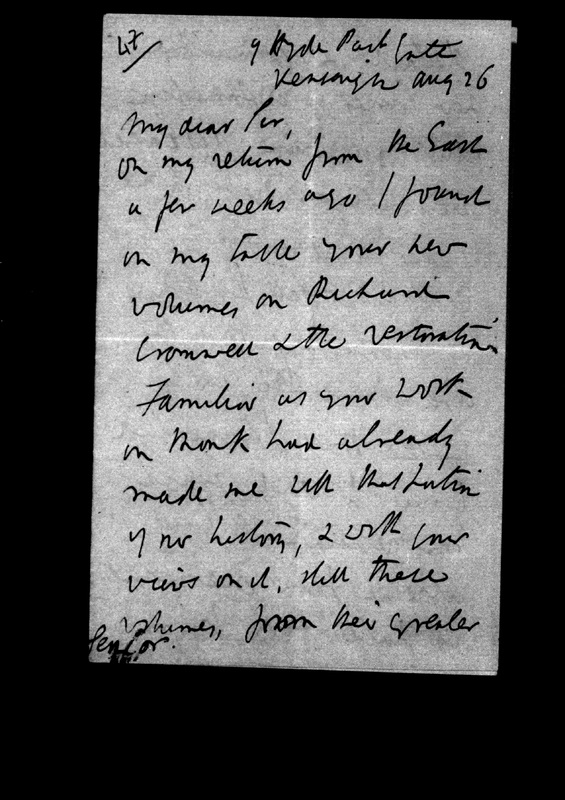 47/
9 Hyde Park Gate
Kensington Aug 26
My dear Sir,
On my return from the East
a few weeks ago I found
on my table your new
volumes on Richard
Cromwell & the restoration.
Familiar as your work
on Monk had already
made me with that portion
of our history, & with your
views on it, still these
volumes, from their greater